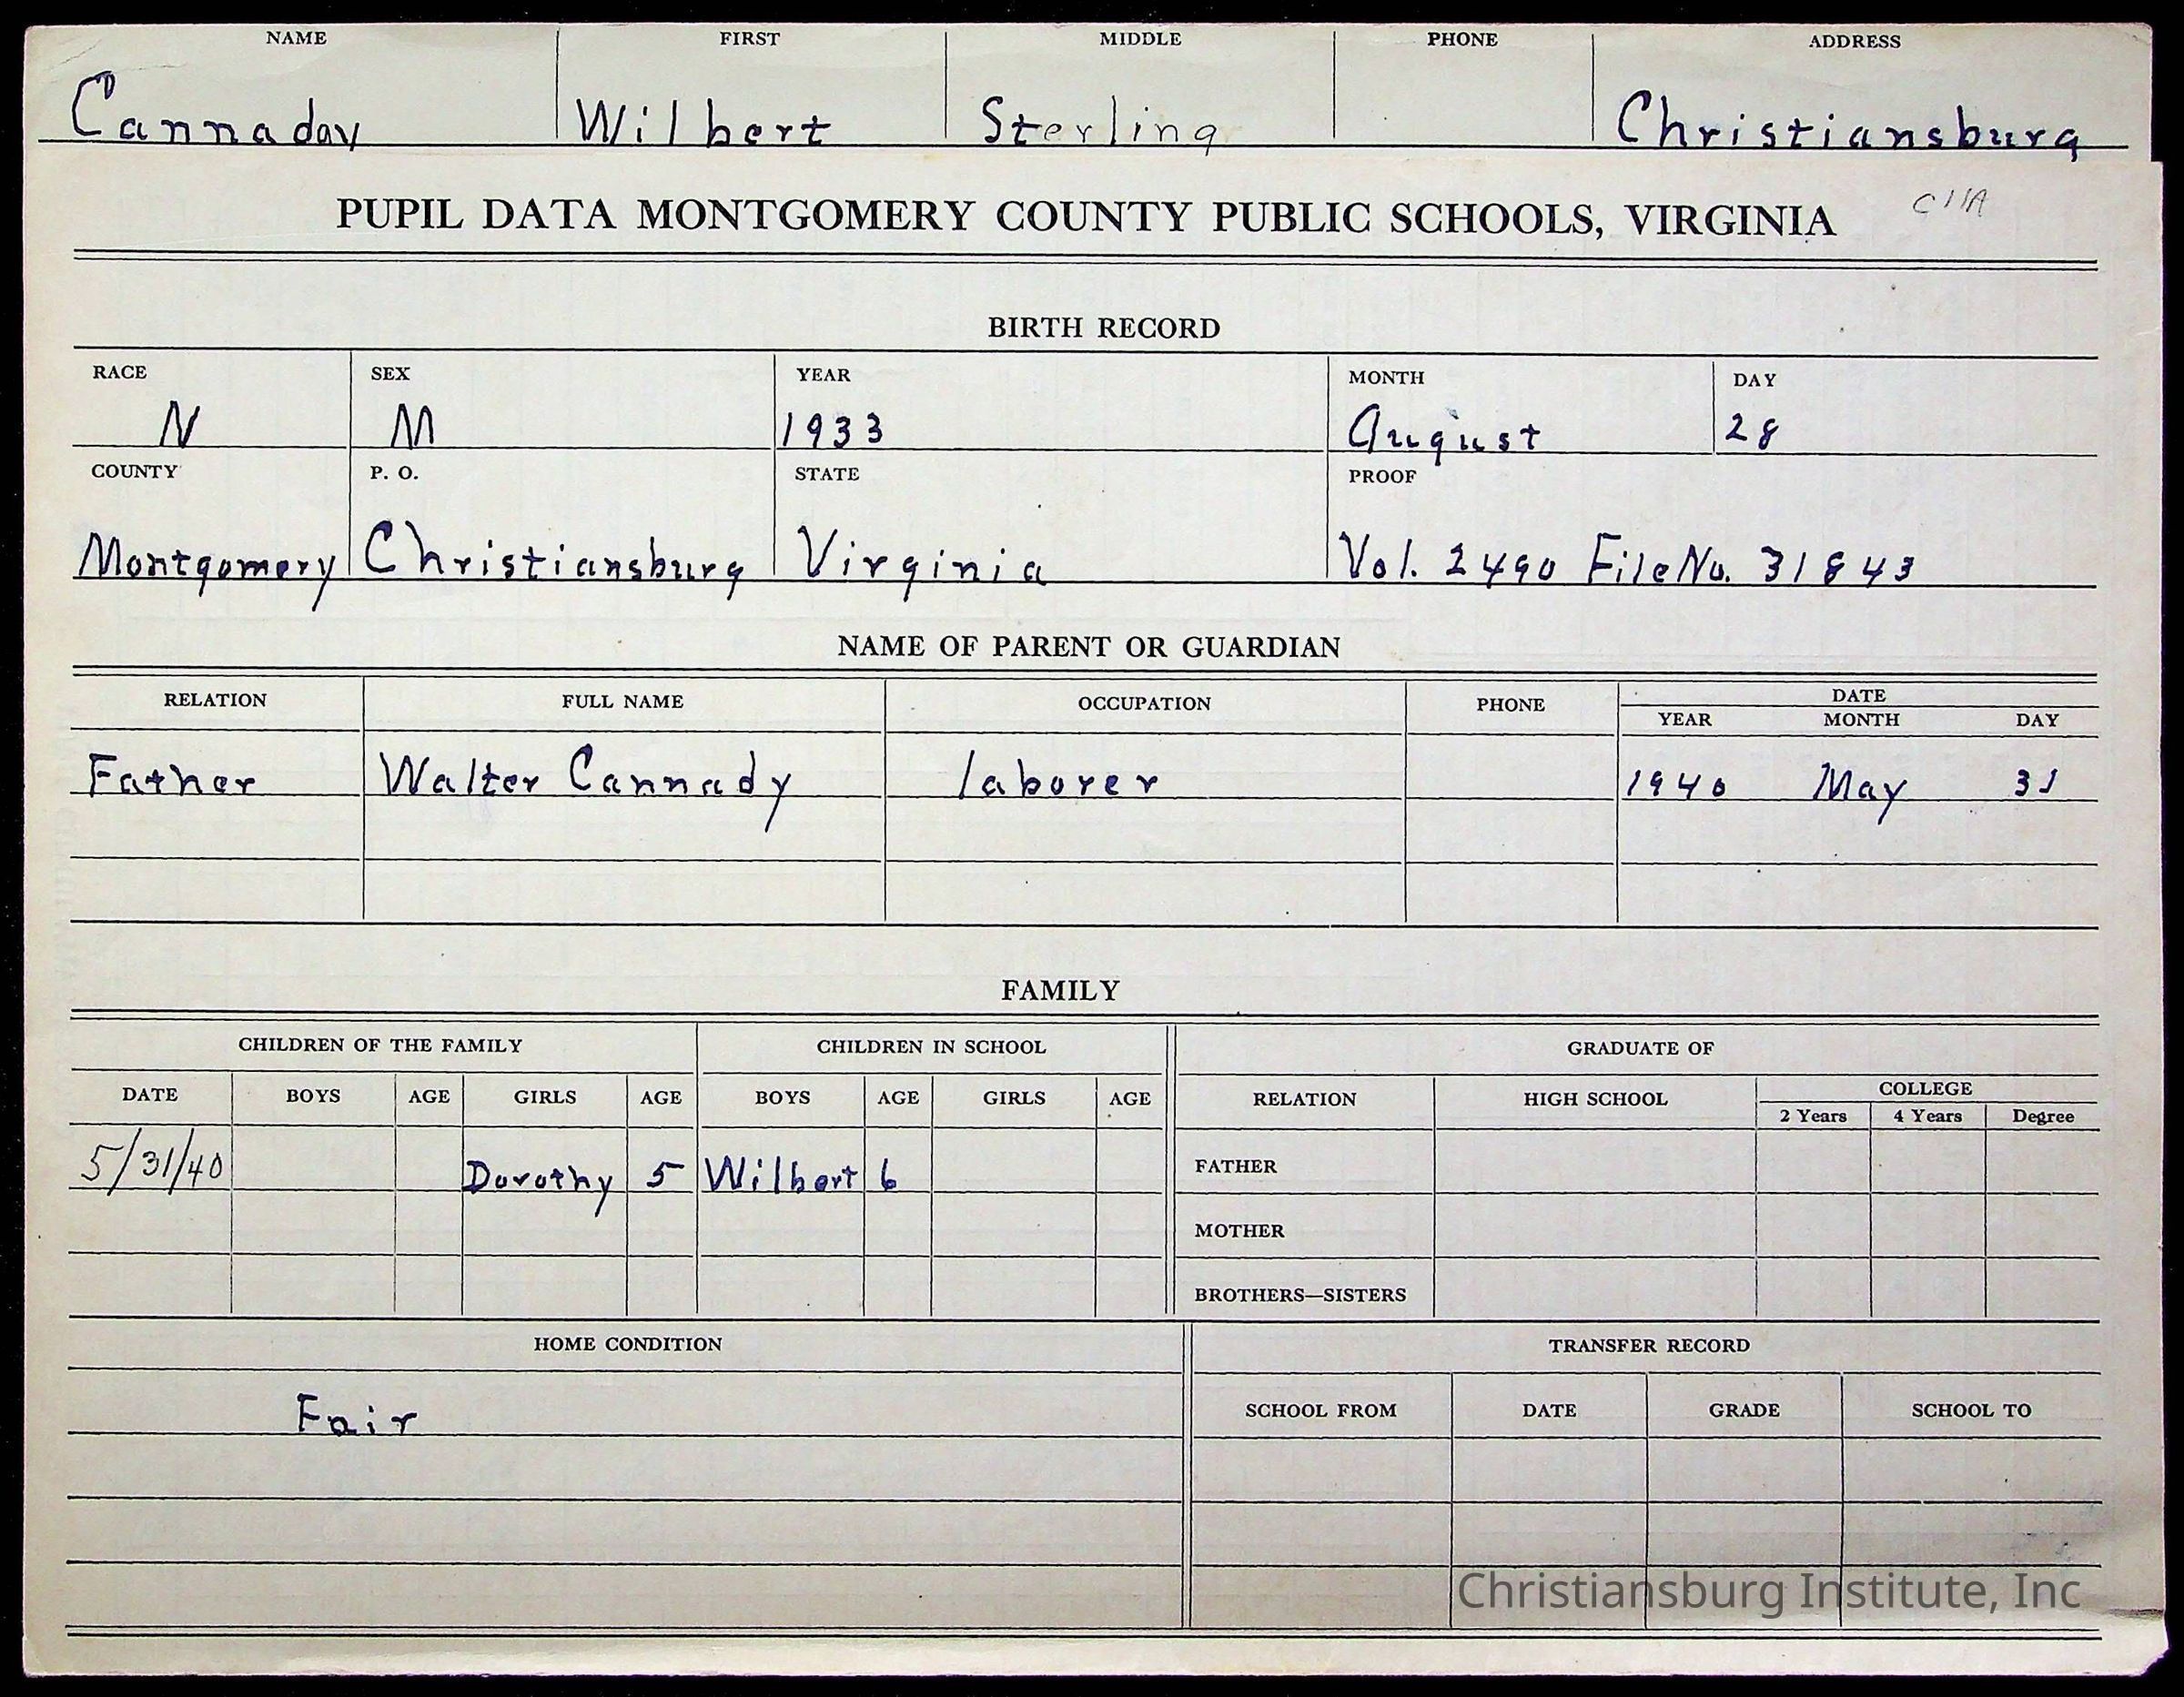 NAME FIRST MIDDLE PHONE ADDRESS
Cannaday Wilbert Sterling Christiansburg
PUPIL DATA MONTGOMERY COUNTY PUBLIC SCHOOLS, VIRGINIA
BIRTH RECORD
RACE SEX YEAR MONTH DAY
N M 1933 August 28
COUNTY P. O. STATE PROOF
Montgomery Christiansburg Virginia Vol. 2490 File No. 31843
NAME OF PARENT OR GUARDIAN
RELATION FULL NAME OCCUPATION PHONE DATE
YEAR MONTH DAY
Father Walter Cannady laborer 1940 May 31
FAMILY
CHILDREN OF THE FAMILY CHILDREN IN SCHOOL GRADUATE OF
DATE BOYS AGE GIRLS AGE BOYS AGE GIRLS AGE RELATION HIGH SCHOOL COLLEGE
2 Years 4 Years Degree
5/31/40 Dorothy 5 Wilbert 6 FATHER
MOTHER
BROTHERS—SISTERS
HOME CONDITION TRANSFER RECORD
SCHOOL FROM DATE GRADE SCHOOL TO
Fair
Christiansburg Institute, Inc